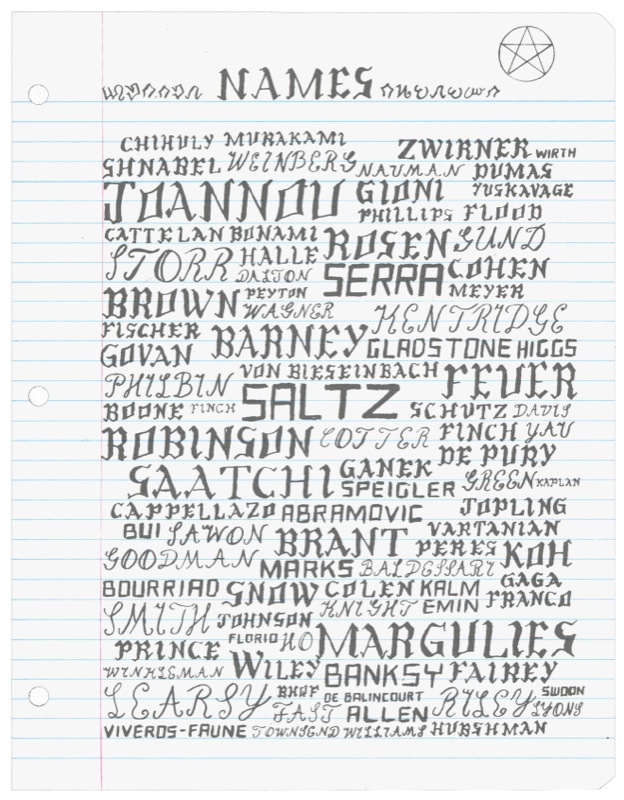 NAMES
CHIHULY MURAKAMI ZWIRNER WIRTH
SHNABEL WEINBERG NAUMAN DUMAS
JOANNOU GIONI YUSKAVAGE
PHILLIPS FLOOD
CATTELAN BONAMI ROSEN GUND
STORR HALLE SERRA COHEN
DALTON
BROWN PEYTON MEYER
WAGNER KENTRIDGE
FISCHER BARNEY
GOVAN GLADSTONE HIGGS
PHILBIN VON BIESEINBACH FEUER
BOONE FINCH SALTZ SCHUTZ DAVIS
ROBINSON COTTER FINCH YAU
DE PURY
SAATCHI GANEK GREEN KAPLAN
SPEIGLER
CAPPELLAZO ABRAMOVIC JOPLING
BUI SAWON BRANT VARTANIAN
PERES KOH
GOODMAN MARKS BALDESSARI
GAGA
BOURRIAD SNOW COLEN KALM
FRANCO
SMITH JOHNSON KNIGHT EMIN
FLORIO HO MARGULIES
PRINCE
WINKLEMAN WILEY BANKSY FAIREY
LEARSY BHQF DE BALINCOURT RILEY SWOON
FAST ALLEN LYONS
VIVEROS-FAUNE TOWNSEND WILLIAMS HUBSHMAN